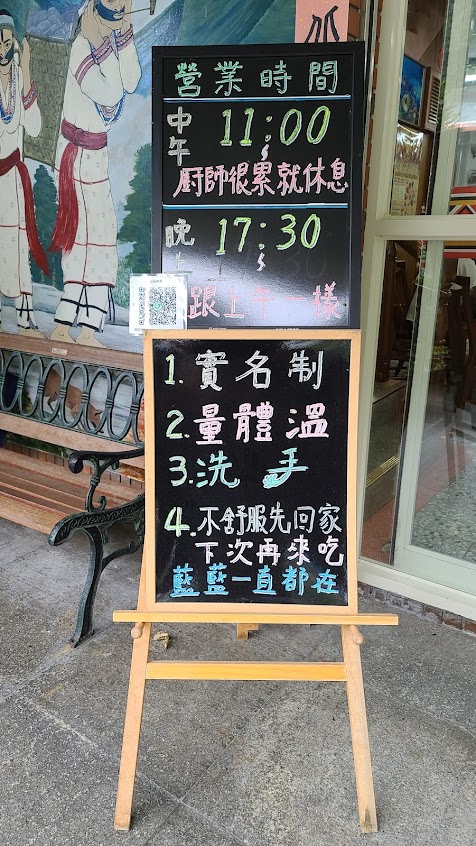 營業時間
中午 11:00
~
廚師很累就休息
晚上 17:30
~
跟上午一樣
1. 實名制
2. 量體溫
3. 洗手
4. 不舒服先回家
下次再來吃
藍藍一直都在